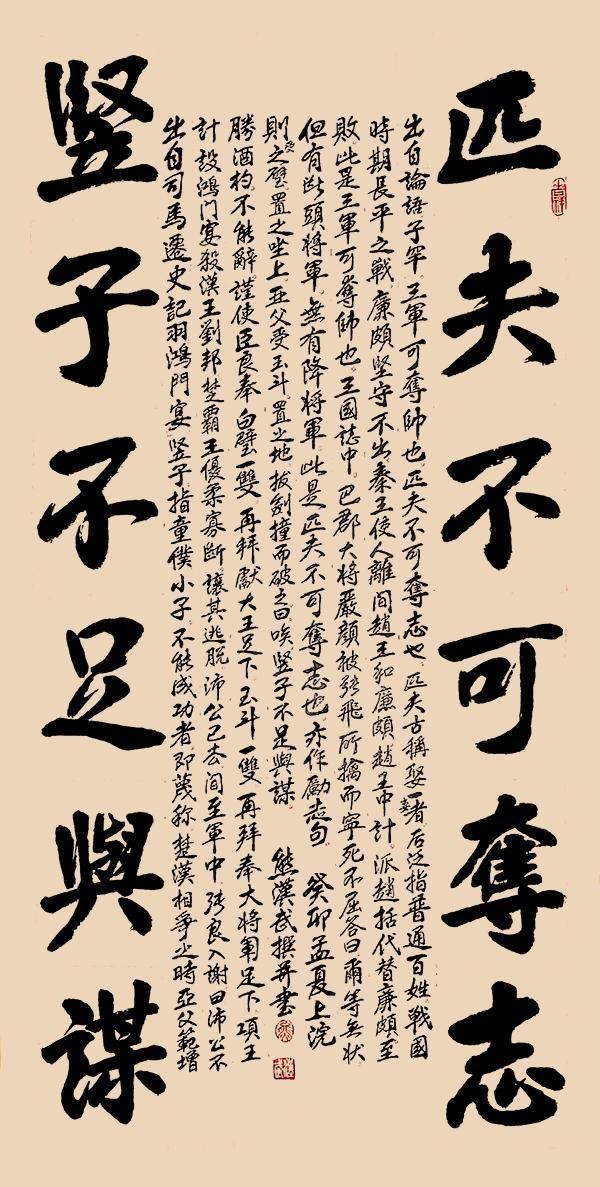 匹夫不可奪志
出自論語子罕三軍可奪帥也匹夫不可奪志也匹夫古稱娶一妻者后泛指普通百姓戰國
時期長平之戰廉頗堅守不出秦王使人離间趙王和廉頗趙王中计派趙括代替廉頗至
敗此是三軍可奪帥也三國誌中巴郡大将嚴顔被張飛所擒而寧死不屈答曰爾等無状
但有斷頭将軍無有降将軍此是匹夫不可奪志也亦作勵志句
癸卯孟夏上浣
竪子不足與謀
出自司馬遷史記羽鴻門宴竪子指童僕小子不能成功者即蔑称楚漢相争之時亞父範增
計設鴻門宴殺漢王劉邦楚霸王優柔寡斷讓其逃脱沛公已去间至軍中張良入謝曰沛公不
勝酒杓不能辭謹使臣良奉白璧一雙再拜獻大王足下玉斗一雙再拜奉大将軍足下項王
則受之璧置之坐上亞父受玉斗置之地拔劍撞而破之曰唉竪子不足與謀
熊漢武撰并書